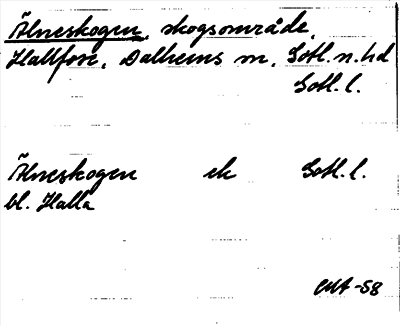 Älneskogen, skogsområde,
Hallfose, Dalhems sn, Gotl. n. hd
Gotl. l.
Älneskogen ek Gotl. l.
bl. Halla
-58